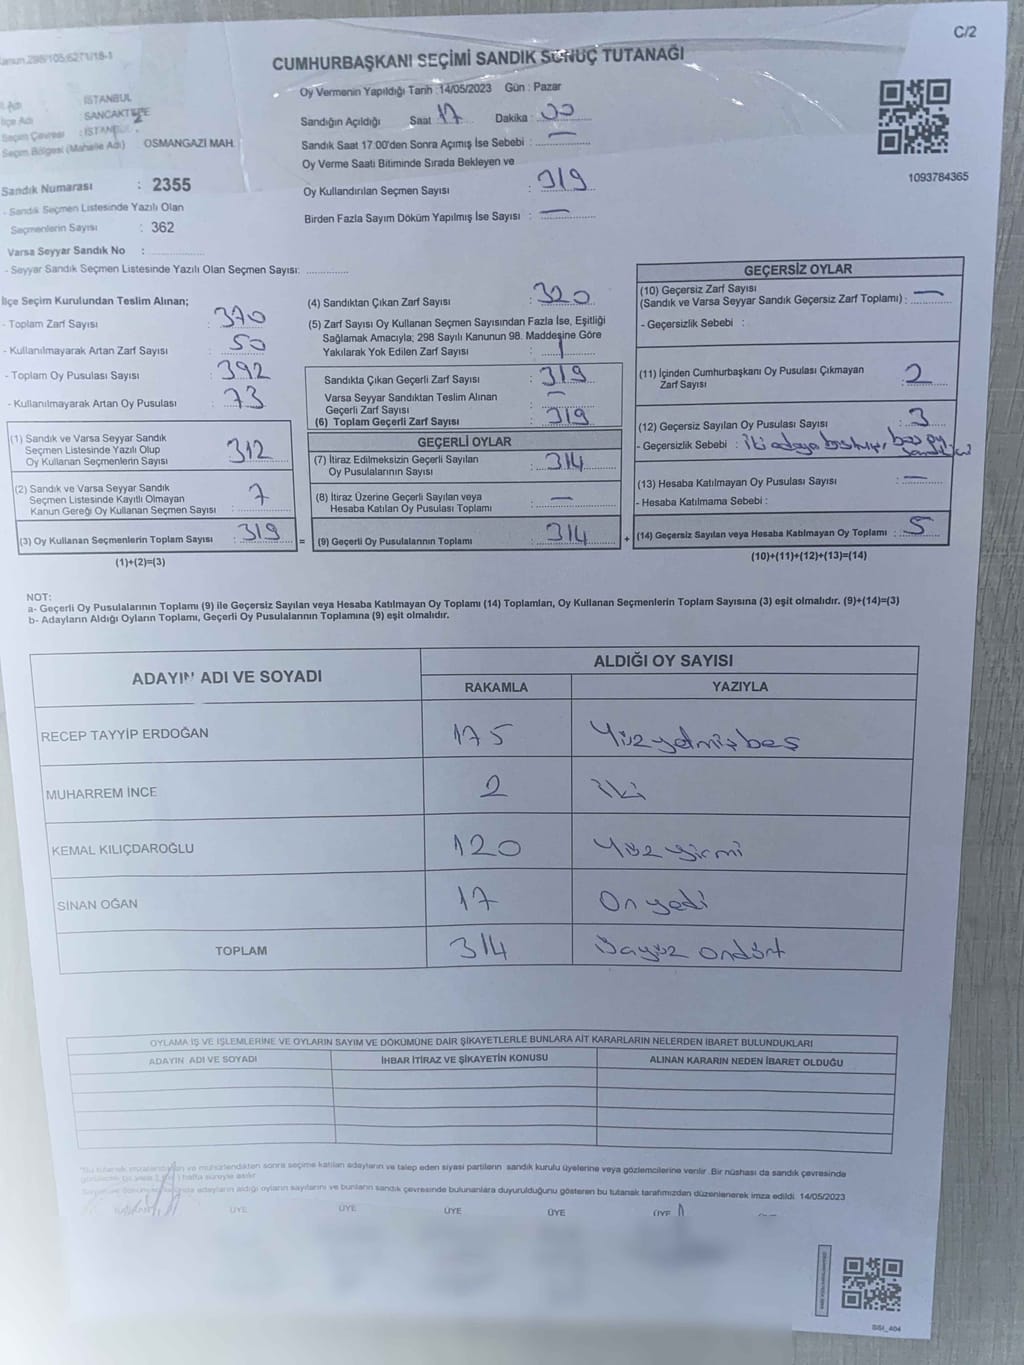 C/2
Kanun 298/105;6271/18-1
CUMHURBAŞKANI SEÇİMİ SANDIK SONUÇ TUTANAĞI
Oy Vermenin Yapıldığı Tarih :14/05/2023 Gün : Pazar
İl Adı İSTANBUL
İlçe Adı SANCAKTEPE
Seçim Çevresi : İSTANBUL
Seçim Bölgesi (Mahalle Adı) OSMANGAZİ MAH.
Sandığın Açıldığı Saat 17 Dakika : 00
Sandık Saat 17:00'den Sonra Açılmış İse Sebebi : —
Oy Verme Saati Bitiminde Sırada Bekleyen ve
Oy Kullandırılan Seçmen Sayısı : 319
Birden Fazla Sayım Döküm Yapılmış İse Sayısı : —
1093784365
Sandık Numarası : 2355
- Sandık Seçmen Listesinde Yazılı Olan
Seçmenlerin Sayısı : 362
Varsa Seyyar Sandık No :
- Seyyar Sandık Seçmen Listesinde Yazılı Olan Seçmen Sayısı:
İlçe Seçim Kurulundan Teslim Alınan;
- Toplam Zarf Sayısı : 370
- Kullanılmayarak Artan Zarf Sayısı : 50
- Toplam Oy Pusulası Sayısı : 392
- Kullanılmayarak Artan Oy Pusulası : 73
(1) Sandık ve Varsa Seyyar Sandık
Seçmen Listesinde Yazılı Olup
Oy Kullanan Seçmenlerin Sayısı 312
(2) Sandık ve Varsa Seyyar Sandık
Seçmen Listesinde Kayıtlı Olmayan
Kanun Gereği Oy Kullanan Seçmen Sayısı : 7
(3) Oy Kullanan Seçmenlerin Toplam Sayısı : 319 =
(1)+(2)=(3)
(4) Sandıktan Çıkan Zarf Sayısı : 320
(5) Zarf Sayısı Oy Kullanan Seçmen Sayısından Fazla İse, Eşitliği
Sağlamak Amacıyla; 298 Sayılı Kanunun 98. Maddesine Göre
Yakılarak Yok Edilen Zarf Sayısı : 1
Sandıkta Çıkan Geçerli Zarf Sayısı : 319
Varsa Seyyar Sandıktan Teslim Alınan
Geçerli Zarf Sayısı : —
(6) Toplam Geçerli Zarf Sayısı : 319
GEÇERLİ OYLAR
(7) İtiraz Edilmeksizin Geçerli Sayılan
Oy Pusulalarının Sayısı : 314
(8) İtiraz Üzerine Geçerli Sayılan veya
Hesaba Katılan Oy Pusulası Toplamı : —
(9) Geçerli Oy Pusulalarının Toplamı : 314 +
GEÇERSİZ OYLAR
(10) Geçersiz Zarf Sayısı
(Sandık ve Varsa Seyyar Sandık Geçersiz Zarf Toplamı) : —
- Geçersizlik Sebebi :
(11) İçinden Cumhurbaşkanı Oy Pusulası Çıkmayan
Zarf Sayısı : 2
(12) Geçersiz Sayılan Oy Pusulası Sayısı : 3
- Geçersizlik Sebebi : iki adaya
(13) Hesaba Katılmayan Oy Pusulası Sayısı : —
- Hesaba Katılmama Sebebi :
(14) Geçersiz Sayılan veya Hesaba Katılmayan Oy Toplamı : 5
(10)+(11)+(12)+(13)=(14)
NOT:
a- Geçerli Oy Pusulalarının Toplamı (9) ile Geçersiz Sayılan veya Hesaba Katılmayan Oy Toplamı (14) Toplamları, Oy Kullanan Seçmenlerin Toplam Sayısına (3) eşit olmalıdır. (9)+(14)=(3)
b- Adayların Aldığı Oyların Toplamı, Geçerli Oy Pusulalarının Toplamına (9) eşit olmalıdır.
ADAYIN ADI VE SOYADI ALDIĞI OY SAYISI
RAKAMLA YAZIYLA
RECEP TAYYİP ERDOĞAN 175 Yüzyetmişbeş
MUHARREM İNCE 2 iki
KEMAL KILIÇDAROĞLU 120 Yüz yirmi
SİNAN OĞAN 17 On yedi
TOPLAM 314 Üçyüz ondört
OYLAMA İŞ VE İŞLEMLERİNE VE OYLARIN SAYIM VE DÖKÜMÜNE DAİR ŞİKAYETLERLE BUNLARA AİT KARARLARIN NELERDEN İBARET BULUNDUKLARI
ADAYIN ADI VE SOYADI İHBAR İTİRAZ VE ŞİKAYETİN KONUSU ALINAN KARARIN NEDEN İBARET OLDUĞU
"Bu tutanak imzalandıktan ve mühürlendikten sonra seçime katılan adayların ve talep eden siyasi partilerin sandık kurulu üyelerine veya gözlemcilerine verilir. Bir nüshası da sandık çevresinde
hafta süreyle asılır.
adayların aldığı oyların sayılarını ve bunların sandık çevresinde bulunanlara duyurulduğunu gösteren bu tutanak tarafımızdan düzenlenerek imza edildi. 14/05/2023
ÜYE ÜYE ÜYE ÜYE ÜYE
SSI_404